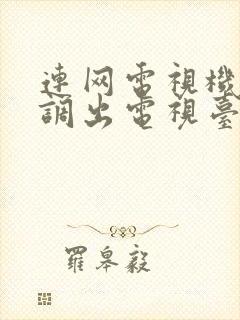 連网電視機
調出電視臺
羅皋毅